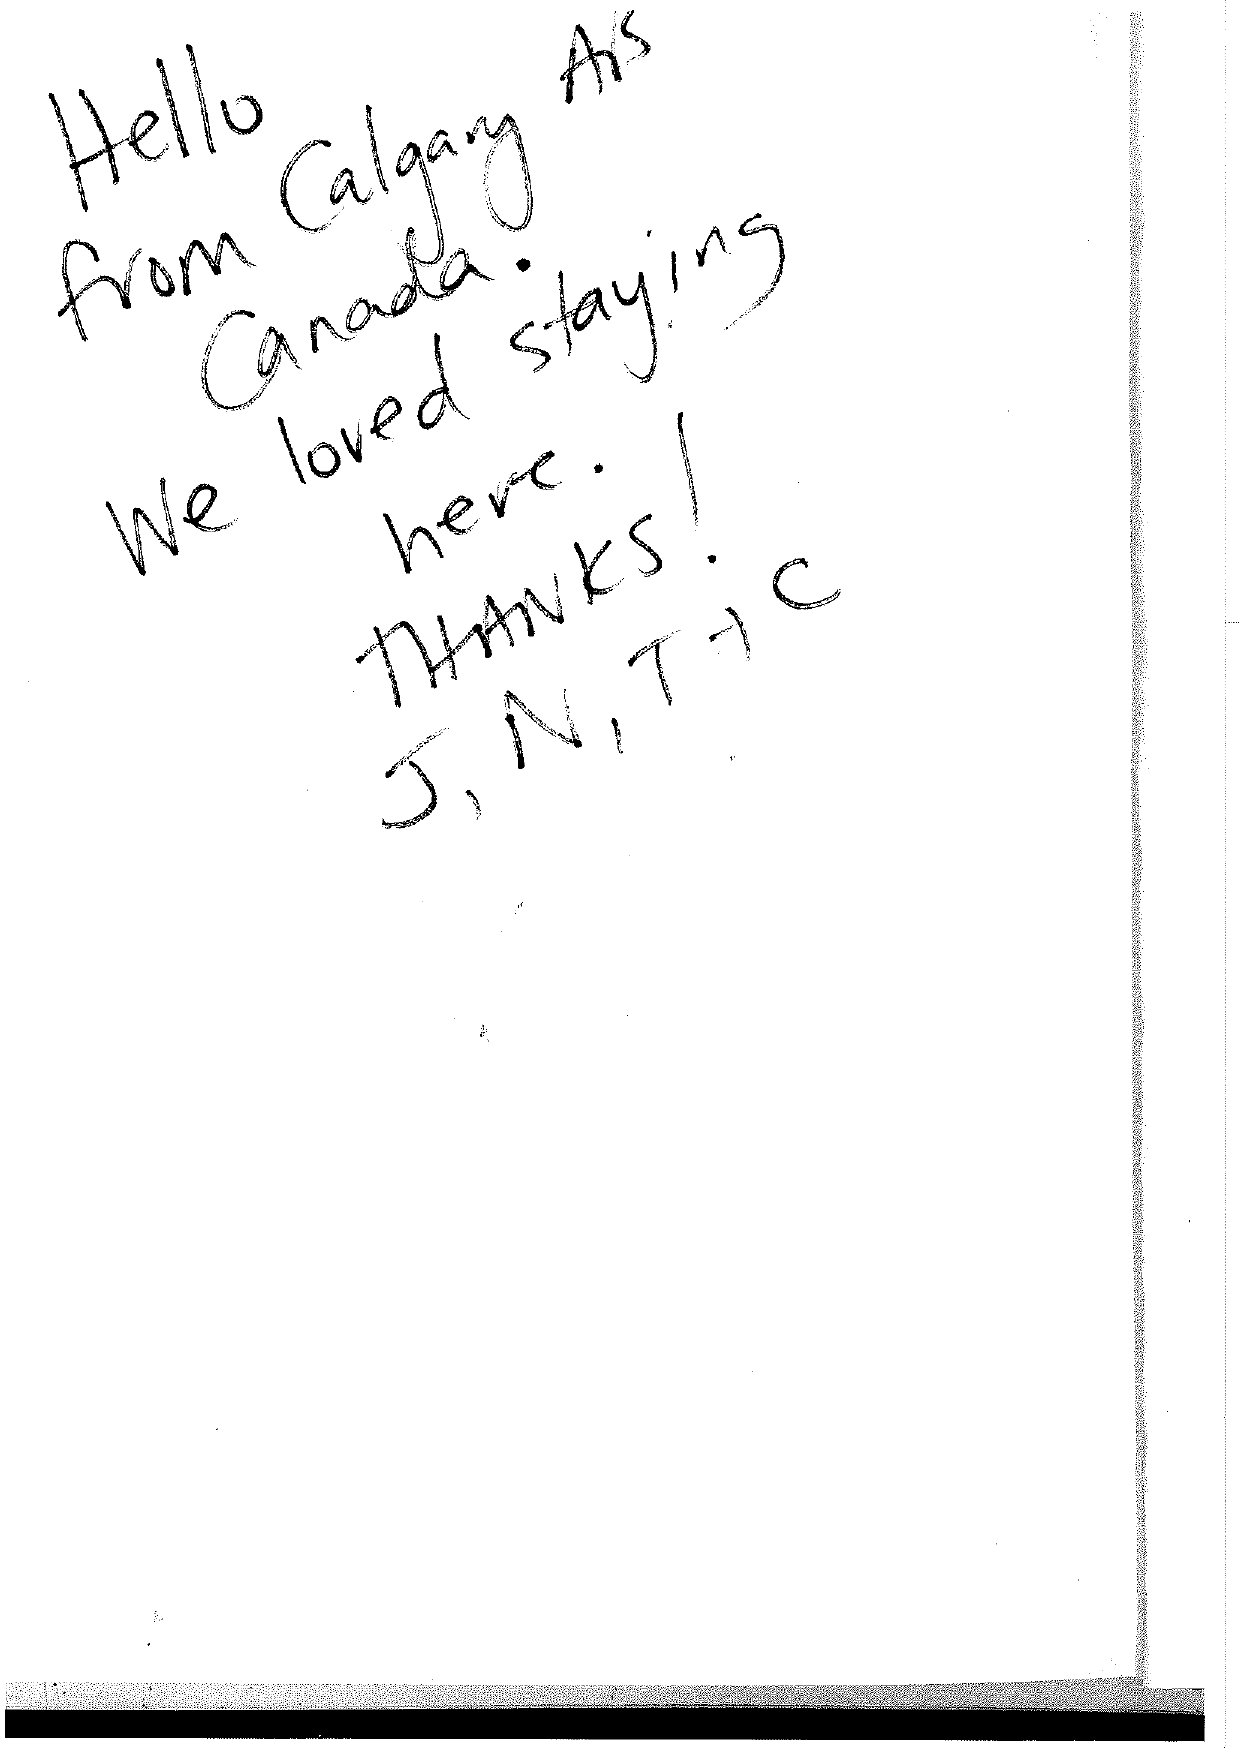 Hello
from Calgary
Canada.
We loved staying
here.
THANKS!
J, N, T + C